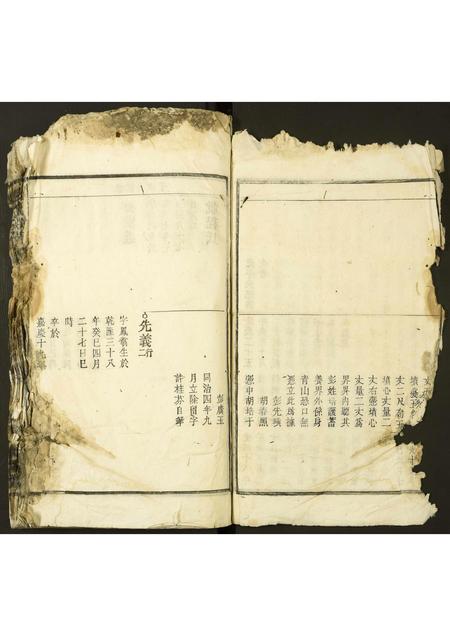 丈二尺
墳心丈量二
丈右憑墳心
丈量二丈為
界界內聽其
彭姓培護蓄
養界外係身
青山恐口無
憑立此為據
彭先
胡
憑中胡
彭廣玉
同治四年九
月立除留字
許桂芬自筆
先義二行
字鳳翥生於
乾隆三十八
年癸巳四月
二十七日巳
時
卒於
嘉慶十